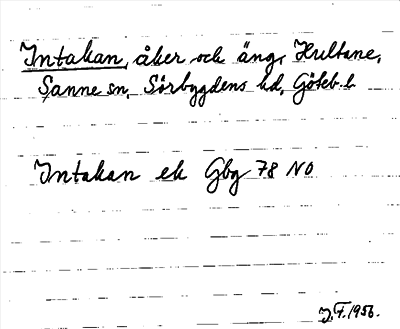 Intakan, åker och äng, Hultane,
Sanne sn, Sörbygdens hd, Göteb. l.
Intakan ek Gbg 78 NO
J.F. 1956.